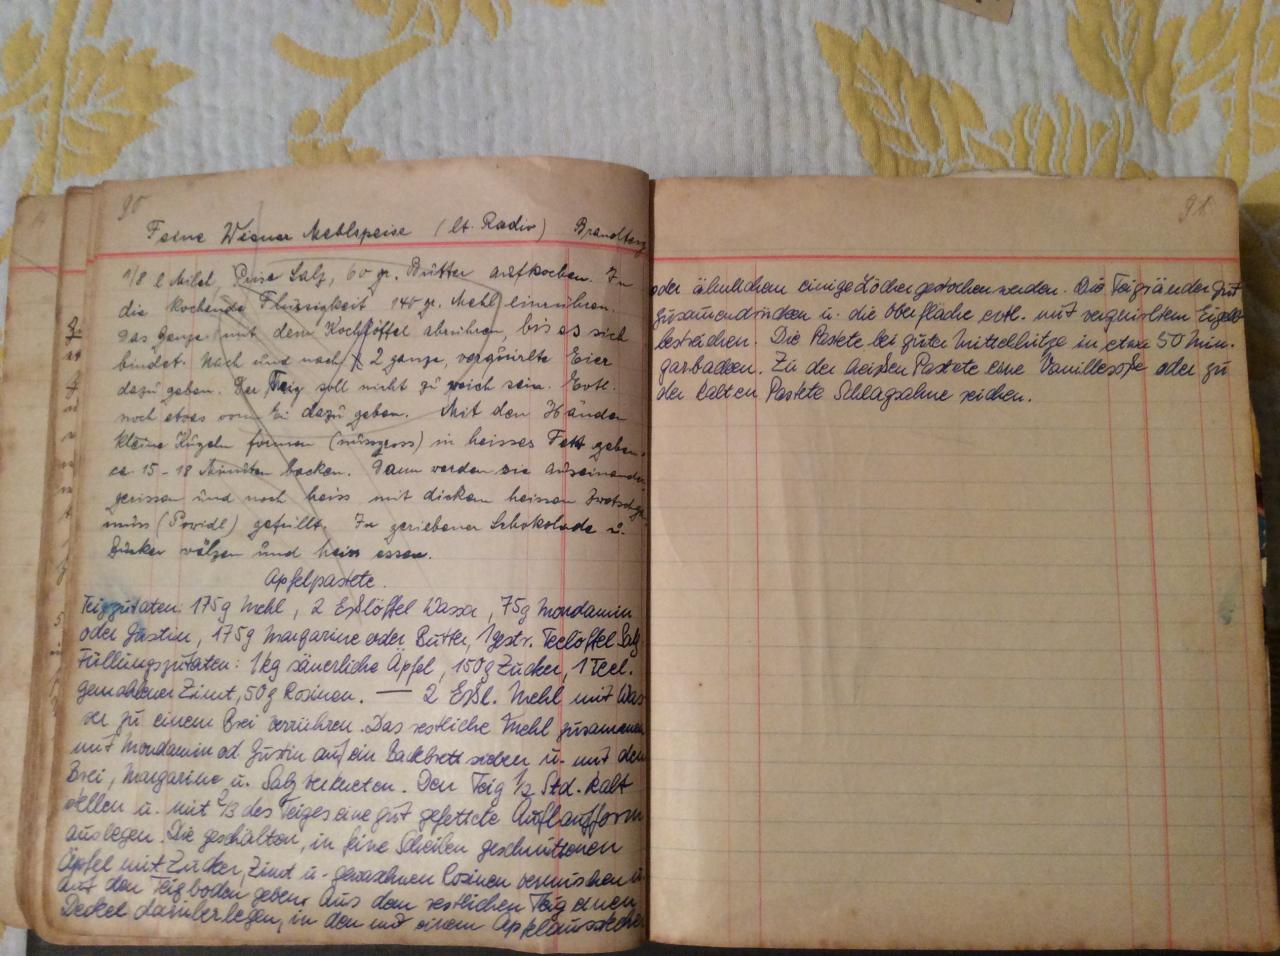 90
Feine Wiener Mehlspeise (lt. Radio) Brandteig
1/8 l Milch, Prise Salz, 60 gr. Butter aufkochen. In
die kochende Flüssigkeit 140 gr. Mehl einrühren.
das Ganze mit dem Kochlöffel abrühren, bis es sich
bindet. Nach und nach 2 ganze, verquirlte Eier
dazu geben. Der Teig soll nicht zu weich sein. Evtl.
noch etwas vom Ei dazu geben. Mit den Händen
kleine Kugeln formen (nussgross) in heisses Fett geben,
ca 15-18 Minuten backen. Dann werden sie auseinander
gerissen und noch heiss mit dickem heissen Zwetschgen
mus (Powidl) gefüllt. In geriebener Schokolade u.
Zucker wälzen und heiss essen.
Apfelpastete.
Teigzutaten: 175g Mehl, 2 Eßlöffel Wasser, 75g Mondamin
oder Gustin, 175g Margarine oder Butter, 1 gestr. Teelöffel Salz
Füllungszutaten: 1 kg säuerliche Äpfel, 150g Zucker, 1 Teel.
gemahlener Zimt, 50g Rosinen. — 2 Eßl. Mehl mit Was-
ser zu einem Brei verrühren. Das restliche Mehl zusammen
mit Mondamin od. Gustin auf ein Backbrett sieben u. mit dem
Brei, Margarine u. Salz verkneten. Den Teig 1/2 Std. kalt
stellen u. mit 2/3 des Teiges eine gut gefettete Auflaufform
auslegen. Die geschälten, in feine Scheiben geschnittenen
Äpfel mit Zucker, Zimt u. gewaschenen Rosinen vermischen u.
auf den Teigboden geben. Aus dem restlichen Teig einen
Deckel darüberlegen, in den mit einem Apfelausstecher
91
oder ähnlichen einige Löcher gestochen werden. Die Teigränder gut
zusammendrücken u. die Oberfläche evtl. mit verquirltem Eigelb
bestreichen. Die Pastete bei guter Mittelhitze in etwa 50 Min.
garbacken. Zu der heißen Pastete eine Vanillesoße oder zu
der kalten Pastete Schlagsahne reichen.